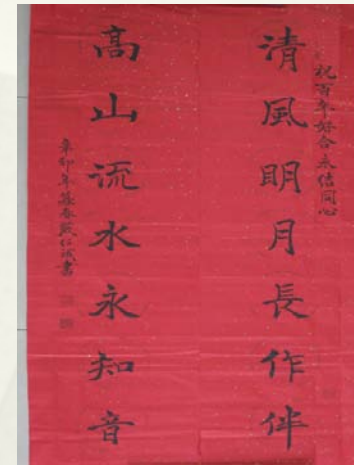 祝百年好合永结同心
清風眀月長作伴
髙山流水永知音
辛卯年春仁诚書